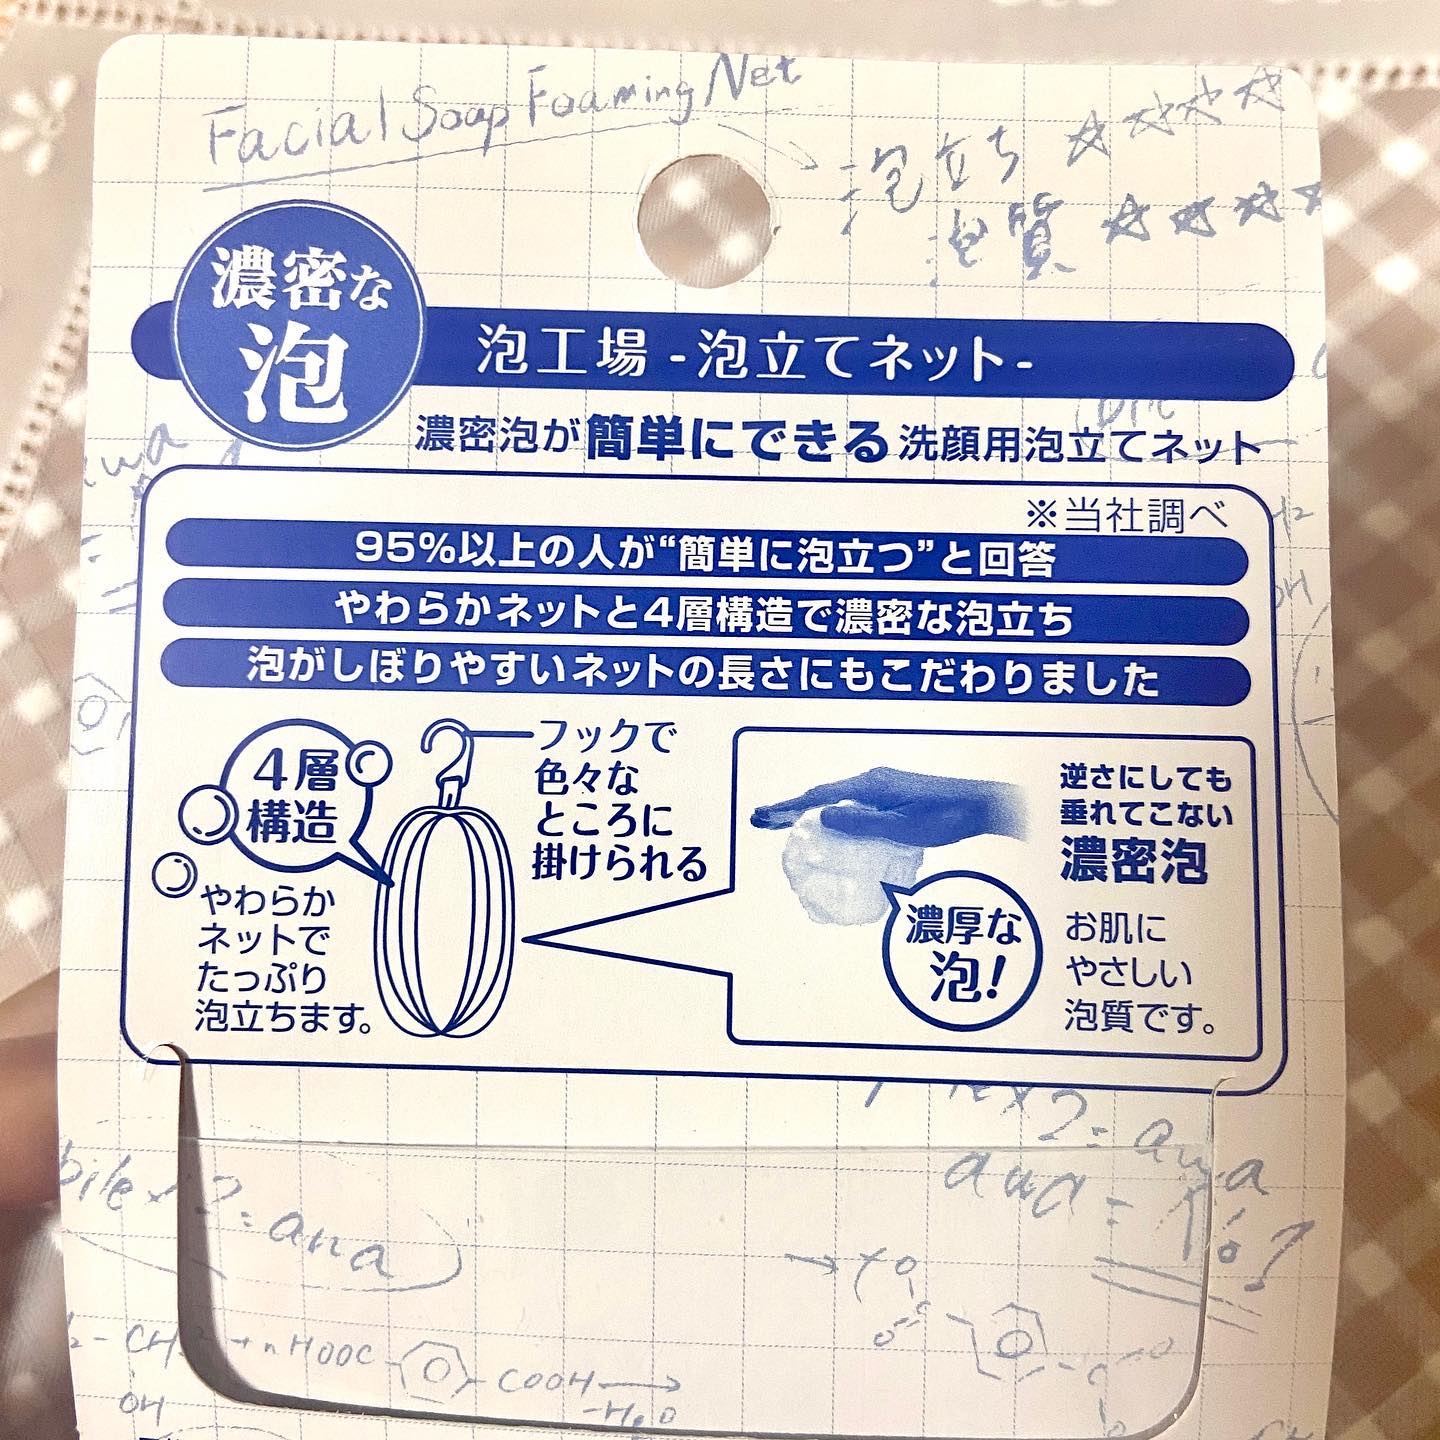 Facial Soap Foaming Net
泡立ち ☆☆☆☆
泡質 ☆☆☆☆
濃密な
泡
泡工場 -泡立てネット-
濃密泡が簡単にできる洗顔用泡立てネット
※当社調べ
95%以上の人が“簡単に泡立つ”と回答
やわらかネットと4層構造で濃密な泡立ち
泡がしぼりやすいネットの長さにもこだわりました
4層
構造
やわらか
ネットで
たっぷり
泡立ちます。
フックで
色々な
ところに
掛けられる
逆さにしても
垂れてこない
濃密泡
濃厚な
泡!
お肌に
やさしい
泡質です。
ana
ana
HOOC
COOH
OH